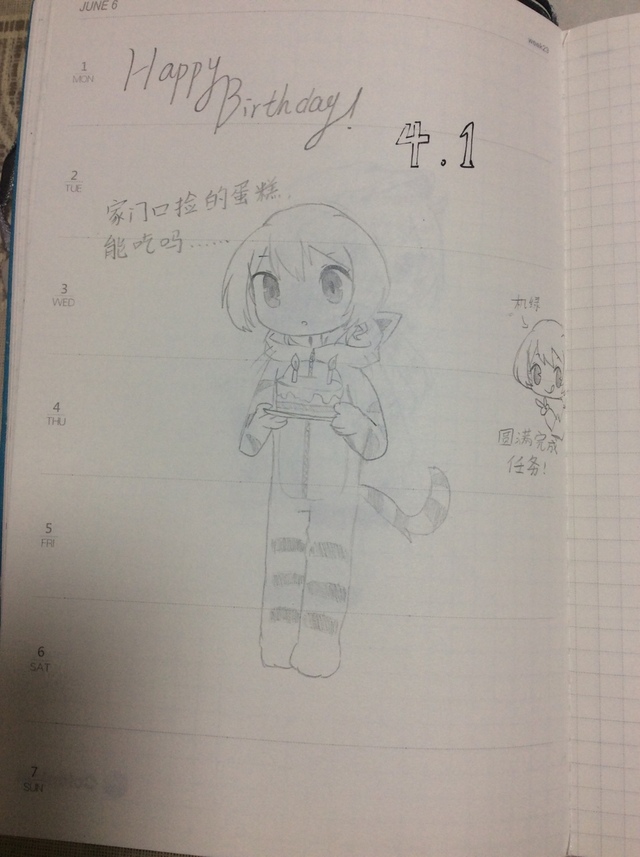 JUNE 6
week23
1
MON
Happy
Birthday!
4.1
2
TUE
家门口捡的蛋糕,
能吃吗……
3
WED
机绿
4
THU
圆满完成
任务!
5
FRI
6
SAT
7
SUN